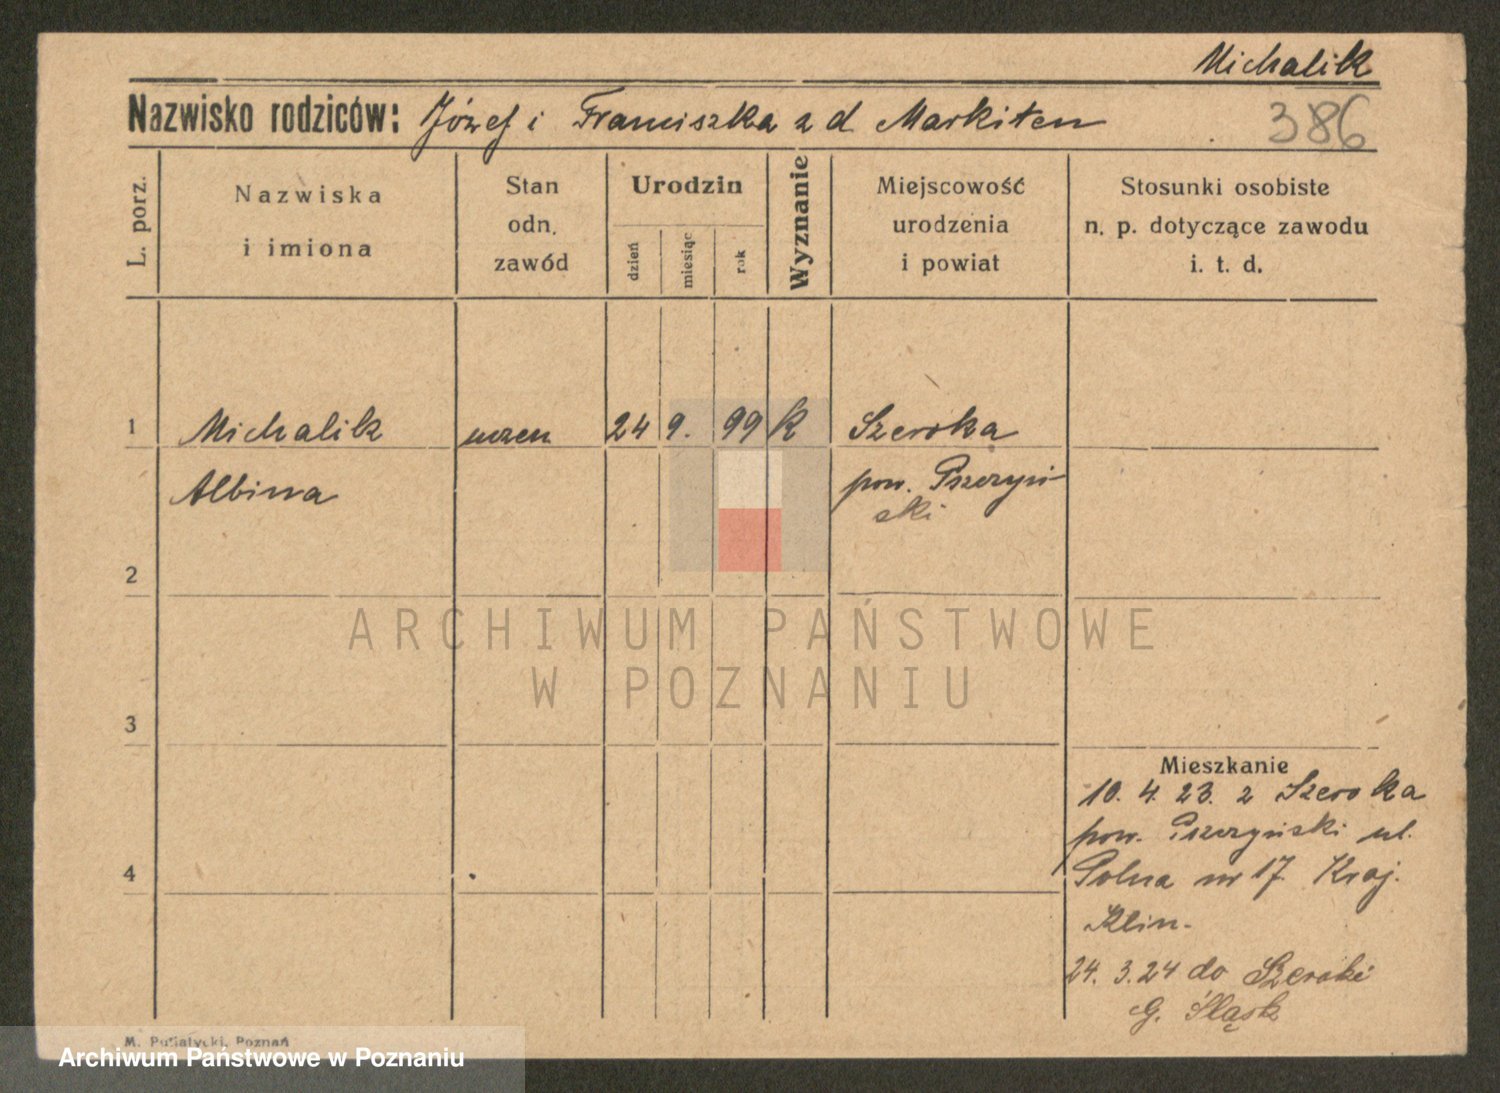 Michalik
Nazwisko rodziców: Józef i Franciszka z d. Markiten
386
L. porz.
Nazwiska
i imiona
Stan
odn.
zawód
Urodzin
dzień
miesiąc
rok
Wyznanie
Miejscowość
urodzenia
i powiat
Stosunki osobiste
n. p. dotyczące zawodu
i. t. d.
1 Michalik uczen 24 9. 99 K Szeroka
Albina pow. Pszczyń-
ski
2
ARCHIWUM PAŃSTWOWE
W POZNANIU
3
Mieszkanie
10. 4. 23. z Szeroka
pow. Pszczyński ul.
4
Polna nr 17. Kraj.
Klin.
24. 3. 24 do Szeroki
G. Śląsk
M. Putiatycki, Poznań
Archiwum Państwowe w Poznaniu